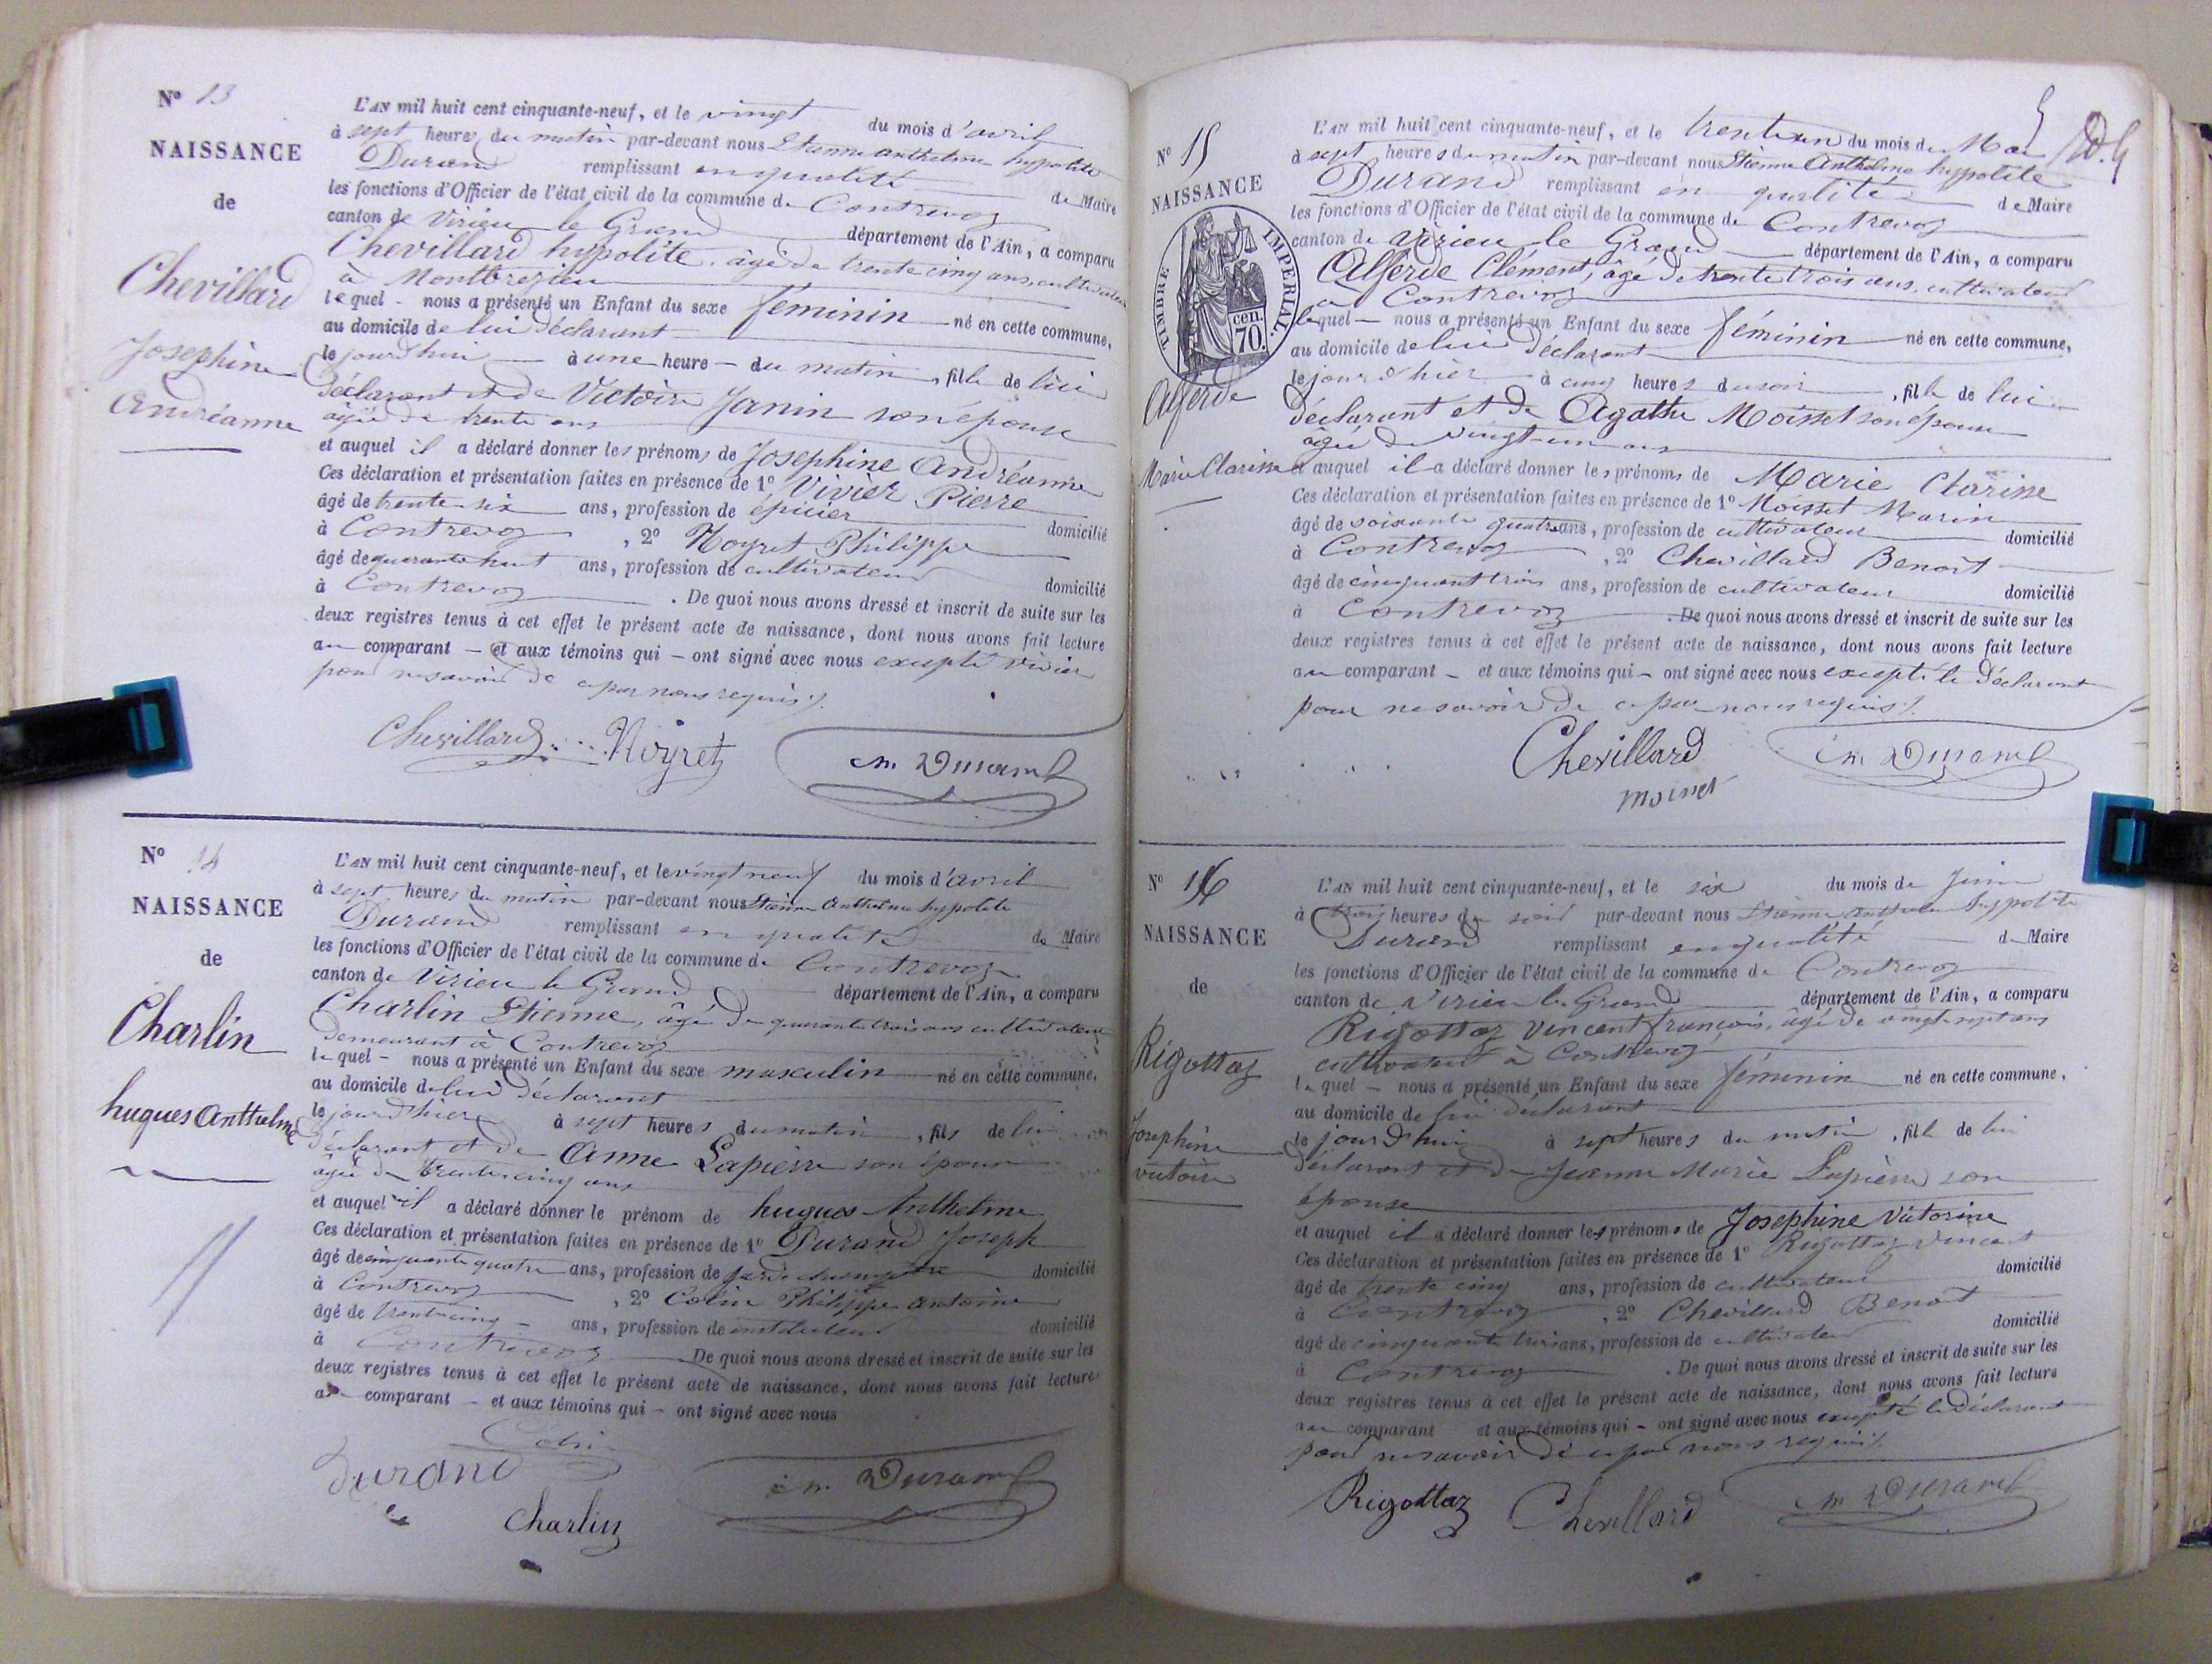 N° 13
NAISSANCE
de
Chevillard
Josephine
Andréanne
L'AN mil huit cent cinquante-neuf, et le vingt du mois d'avril
à sept heures du matin par-devant nous Etienne Anthelme hypolite
Durand remplissant en qualité de Maire
les fonctions d'Officier de l'état civil de la commune de Contrevoz
canton de Virieu le Grand département de l'Ain, a comparu
Chevillard hypolite, âgé de trente cinq ans, cultivateur
à Montbreyzieu
lequel - nous a présenté un Enfant du sexe féminin né en cette commune,
au domicile de lui déclarant
le jourd'hui à une heure - du matin, fille de lui
déclarant et de Victoire Janin son épouse
âgée de trente ans
et auquel il a déclaré donner les prénoms de Josephine Andréanne
Ces déclaration et présentation faites en présence de 1° Vivier Pierre
âgé de trente six ans, profession de épicier domicilié
à Contrevoz, 2° Noyret Philippe
âgé de quarante huit ans, profession de cultivateur domicilié
à Contrevoz. De quoi nous avons dressé et inscrit de suite sur les
deux registres tenus à cet effet le présent acte de naissance, dont nous avons fait lecture
au comparant - et aux témoins qui - ont signé avec nous excepté Vivier
pour ne savoir de ce par nous requis
Chevillard Noyret m Durand
N° 14
NAISSANCE
de
Charlin
hugues Anthelme
L'AN mil huit cent cinquante-neuf, et le vingt neuf du mois d'avril
à sept heures du matin par-devant nous Etienne Anthelme hypolite
Durand remplissant en qualité de Maire
les fonctions d'Officier de l'état civil de la commune de Contrevoz
canton de Virieu le Grand département de l'Ain, a comparu
Charlin Etienne, âgé de quarante trois ans cultivateur
demeurant à Contrevoz
lequel - nous a présenté un Enfant du sexe masculin né en cette commune,
au domicile de lui déclarant
le jour d'hier à sept heures du matin, fils de lui
déclarant et de Anne Lapierre son épouse
âgée de trente cinq ans
et auquel il a déclaré donner le prénom de hugues Anthelme
Ces déclaration et présentation faites en présence de 1° Durand Joseph
âgé de cinquante quatre ans, profession de garde champêtre domicilié
à Contrevoz, 2° Colin Philippe Antoine
âgé de trente cinq - ans, profession de instituteur domicilié
à Contrevoz De quoi nous avons dressé et inscrit de suite sur les
deux registres tenus à cet effet le présent acte de naissance, dont nous avons fait lecture
au comparant - et aux témoins qui - ont signé avec nous
Colin
Durand m Durand
Charlin
N° 15
NAISSANCE
TIMBRE IMPERIAL.
70 cen.
Alferde
Marie Clarisse
L'AN mil huit cent cinquante-neuf, et le trente un du mois de Mai
à sept heures du matin par-devant nous Etienne Anthelme hypolite
Durand remplissant en qualité de Maire
les fonctions d'Officier de l'état civil de la commune de Contrevoz
canton de Virieu le Grand département de l'Ain, a comparu
Alferde Clément, âgé de trente trois ans, cultivateur
à Contrevoz
lequel - nous a présenté un Enfant du sexe féminin né en cette commune,
au domicile de lui déclarant
le jour d'hier à cinq heures du soir, fille de lui
déclarant et de Agathe Moisset son épouse
âgée de vingt-un ans
et auquel il a déclaré donner les prénoms de Marie Clarisse
Ces déclaration et présentation faites en présence de 1° Moisset Marin
âgé de soixante quatre ans, profession de cultivateur domicilié
à Contrevoz, 2° Chevillard Benoît
âgé de cinquante trois ans, profession de cultivateur domicilié
à Contrevoz. De quoi nous avons dressé et inscrit de suite sur les
deux registres tenus à cet effet le présent acte de naissance, dont nous avons fait lecture
au comparant - et aux témoins qui - ont signé avec nous excepté le déclarant
pour ne savoir de ce par nous requis
Chevillard m Durand
moisset
N° 16
NAISSANCE
de
Rigottaz
Josephine
victoire
L'AN mil huit cent cinquante-neuf, et le six du mois de Juin
à trois heures du soir par-devant nous Etienne Anthelme hypolite
Durand remplissant en qualité de Maire
les fonctions d'Officier de l'état civil de la commune de Contrevoz
canton de Virieu le Grand département de l'Ain, a comparu
Rigottaz Vincent françois, âgé de vingt-sept ans
cultivateur à Contrevoz
lequel - nous a présenté un Enfant du sexe féminin né en cette commune,
au domicile de lui déclarant
le jourd'hui à sept heures du matin, fille de lui
déclarant et de Jeanne Marie Lapierre son
épouse
et auquel il a déclaré donner les prénoms de Josephine Victorine
Ces déclaration et présentation faites en présence de 1° Rigottaz Vincent
âgé de trente cinq ans, profession de cultivateur domicilié
à Contrevoz, 2° Chevillard Benoît
âgé de cinquante trois ans, profession de cultivateur domicilié
à Contrevoz. De quoi nous avons dressé et inscrit de suite sur les
deux registres tenus à cet effet le présent acte de naissance, dont nous avons fait lecture
au comparant et aux témoins qui - ont signé avec nous excepté le déclarant
pour ne savoir de ce par nous requis
Rigottaz Chevillard m Durand